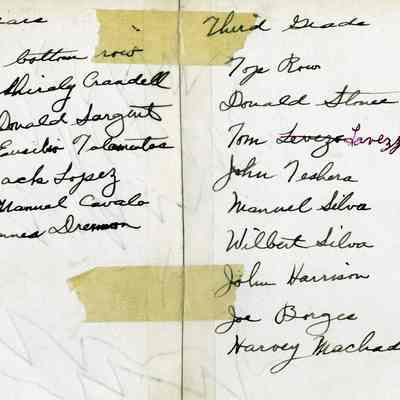 bottom row
Shirely Crandell
Donald Sargent
Eusibio Talamentas
Jack Lopez
Manuel Cavalo
Drennon
Third Grade
Top Row
Donald Stonee
Tom Levezo Lavezz
John Teshera
Manuel Silva
Wilbert Silva
John Harrison
Joe Borges
Harvey Machad